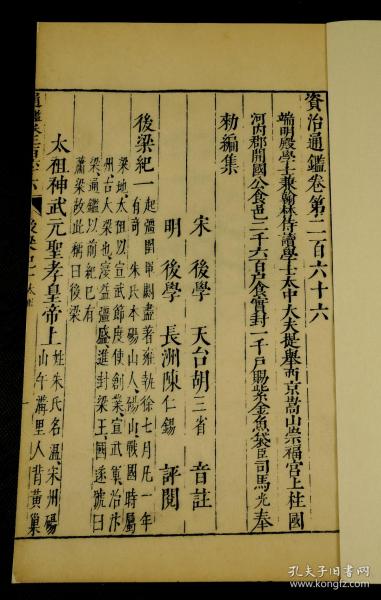 資治通鑑卷第二百六十六
端明殿學士兼翰林侍讀學士太中大夫提舉西京嵩山崇福宮上柱國
河内郡開國公食邑二千六百戶食實封一千戶賜紫金魚袋臣司馬光奉
勅編集
宋後學天台胡三省音註
明後學長洲陳仁錫評閱
後梁紀一
起彊圉單閼盡著雍執徐七月凡一年
有奇
朱氏本碭山人碭山戰國時屬
梁地太祖以宣武節度使創業宣武軍治汴
州古大梁也寖益彊盛進封梁王國遂號曰
梁通鑑以前紀已有
蕭梁故此稱曰後梁
太祖神武元聖孝皇帝上
姓朱氏名溫宋州碭
山午溝里人背黃巢
孔夫子旧书网